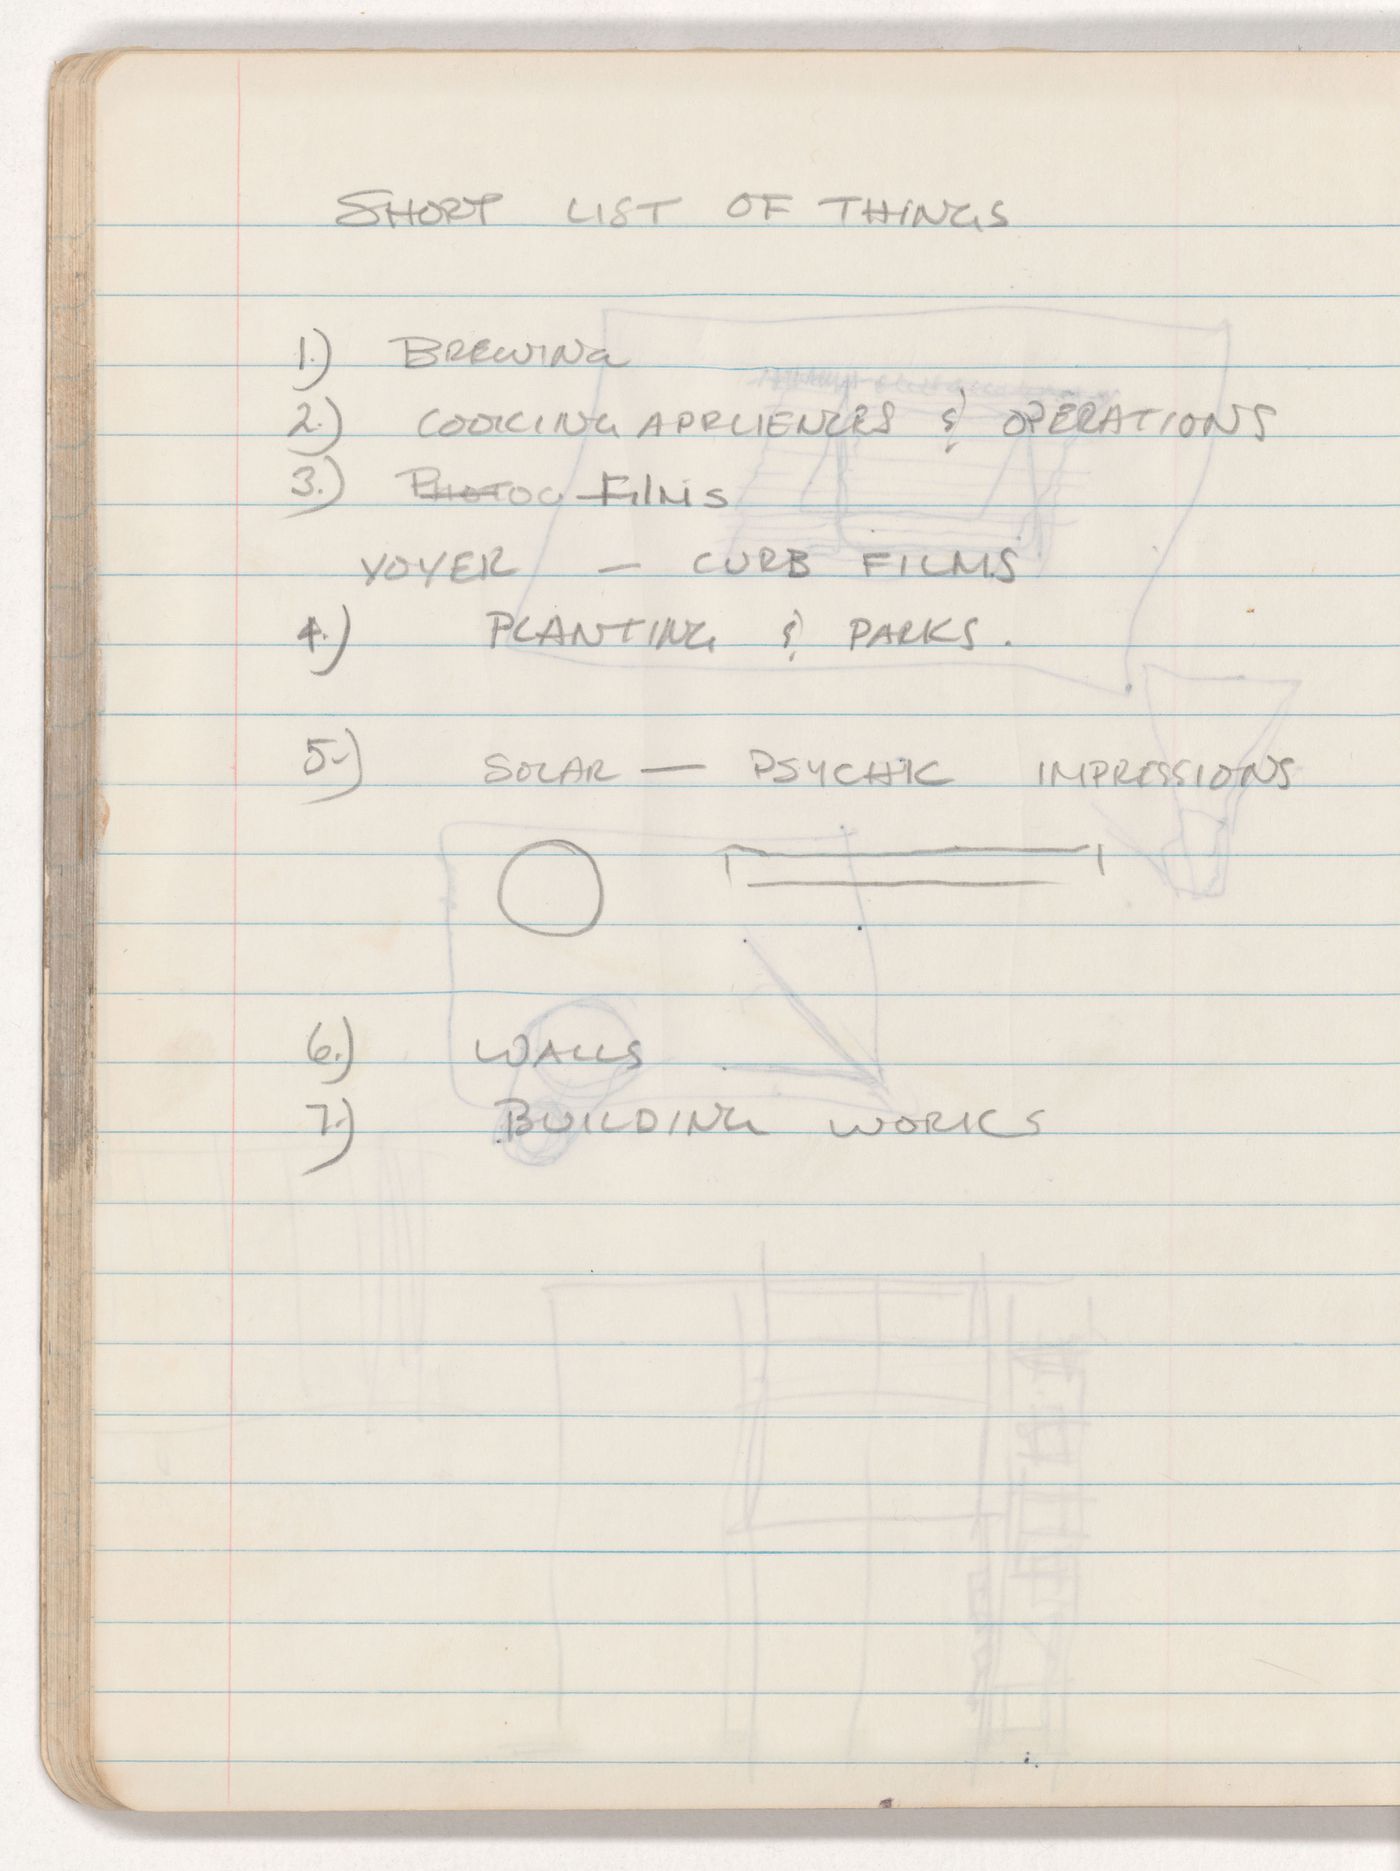 SHORT LIST OF THINGS
1.) BREWING
2.) COOKING APPLIENCES & OPERATIONS
3.) Films
VOYER — CURB FILMS
4.) PLANTING & PARKS.
5.) SOLAR — PSYCHIC IMPRESSIONS
6.) WALLS
7.) BUILDING WORKS